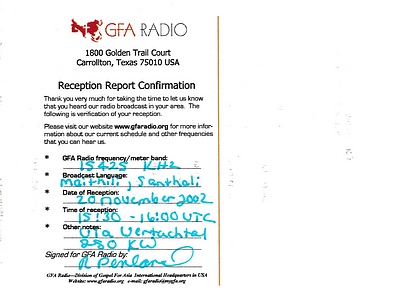 GFA RADIO
1800 Golden Trail Court
Carrollton, Texas 75010 USA
Reception Report Confirmation
Thank you very much for taking the time to let us know
that you heard our radio broadcast in your area. The
following is verification of your reception.
Please visit our website www.gfaradio.org for more infor-
mation about our current schedule and other frequencies
that you can hear us.
* GFA Radio frequency/meter band:
15425 KHz
* Broadcast Language:
Maithili, Santhali
* Date of Reception:
20 November 2002
* Time of reception:
15:30 - 16:00 UTC
* Other notes:
Via Wertachtal
250 KW
Signed for GFA Radio by:
GFA Radio—Division of Gospel For Asia International Headquarters in USA
Website: www.gfaradio.org e-mail: gfaradio@mygfa.org